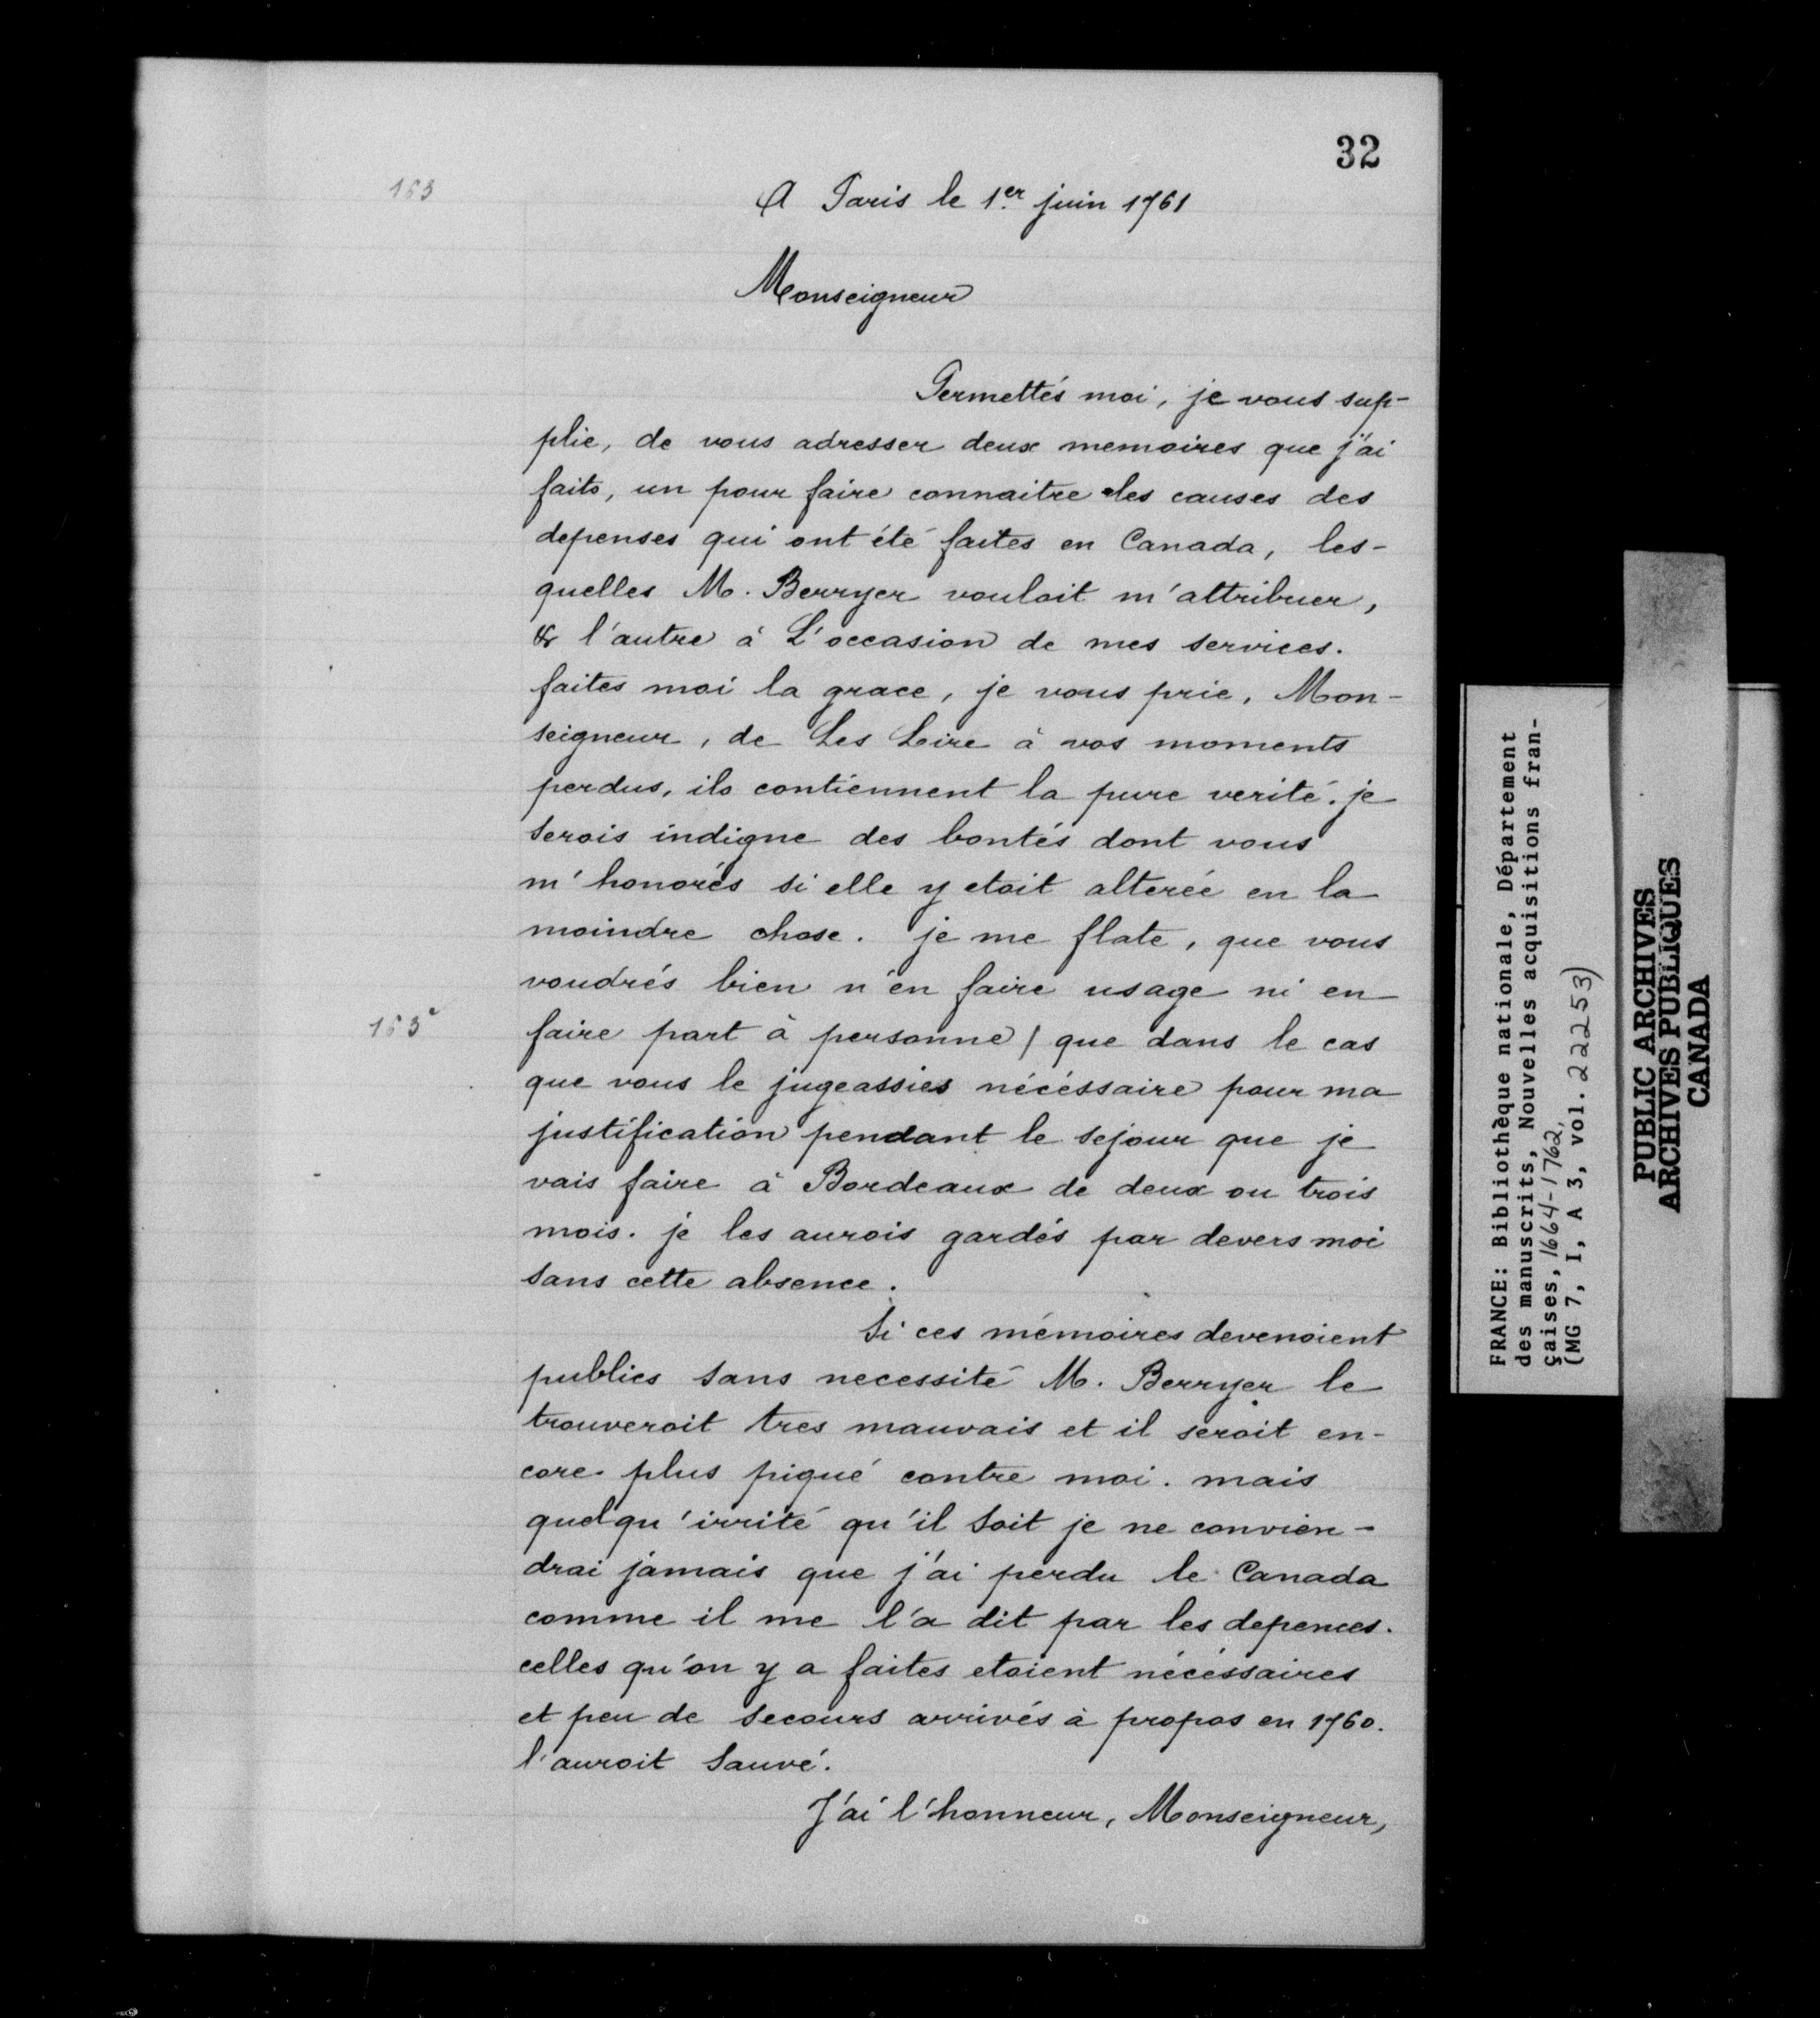 32
163
A Paris le 1er juin 1761
Monseigneur
Permettés moi, je vous sup-
plie, de vous adresser deux memoires que j'ai
faits, un pour faire connaitre les causes des
depenses qui ont été faites en Canada, les-
quelles M. Berryer vouloit m'attribuer,
& l'autre à L'occasion de mes services.
faites moi la grace, je vous prie, Mon-
seigneur, de Les Lire à vos moments
perdus, ils contiennent la pure verité. je
serois indigne des bontés dont vous
m'honorés si elle y etoit alterée en la
moindre chose. je me flate, que vous
voudrés bien n'en faire usage ni en
163v
faire part à personne / que dans le cas
que vous le jugeassies nécéssaire pour ma
justification pendant le sejour que je
vais faire à Bordeaux de deux ou trois
mois. je les aurois gardés par devers moi
sans cette absence.
Si ces mémoires devenoient
publics sans necessité M. Berryer le
trouveroit tres mauvais et il seroit en-
core plus piqué contre moi. mais
quelqu'irrité qu'il soit je ne convien-
drai jamais que j'ai perdu le Canada
comme il me l'a dit par les depences.
celles qu'on y a faites etoient nécéssaires
et peu de secours arrivés à propos en 1760.
l'auroit sauvé.
J'ai l'honneur, Monseigneur,
FRANCE: Bibliothèque nationale, Département
des manuscrits, Nouvelles acquisitions fran-
çaises, 1664-1762,
(MG 7, I, A 3, vol. 22253)
PUBLIC ARCHIVES
ARCHIVES PUBLIQUES
CANADA